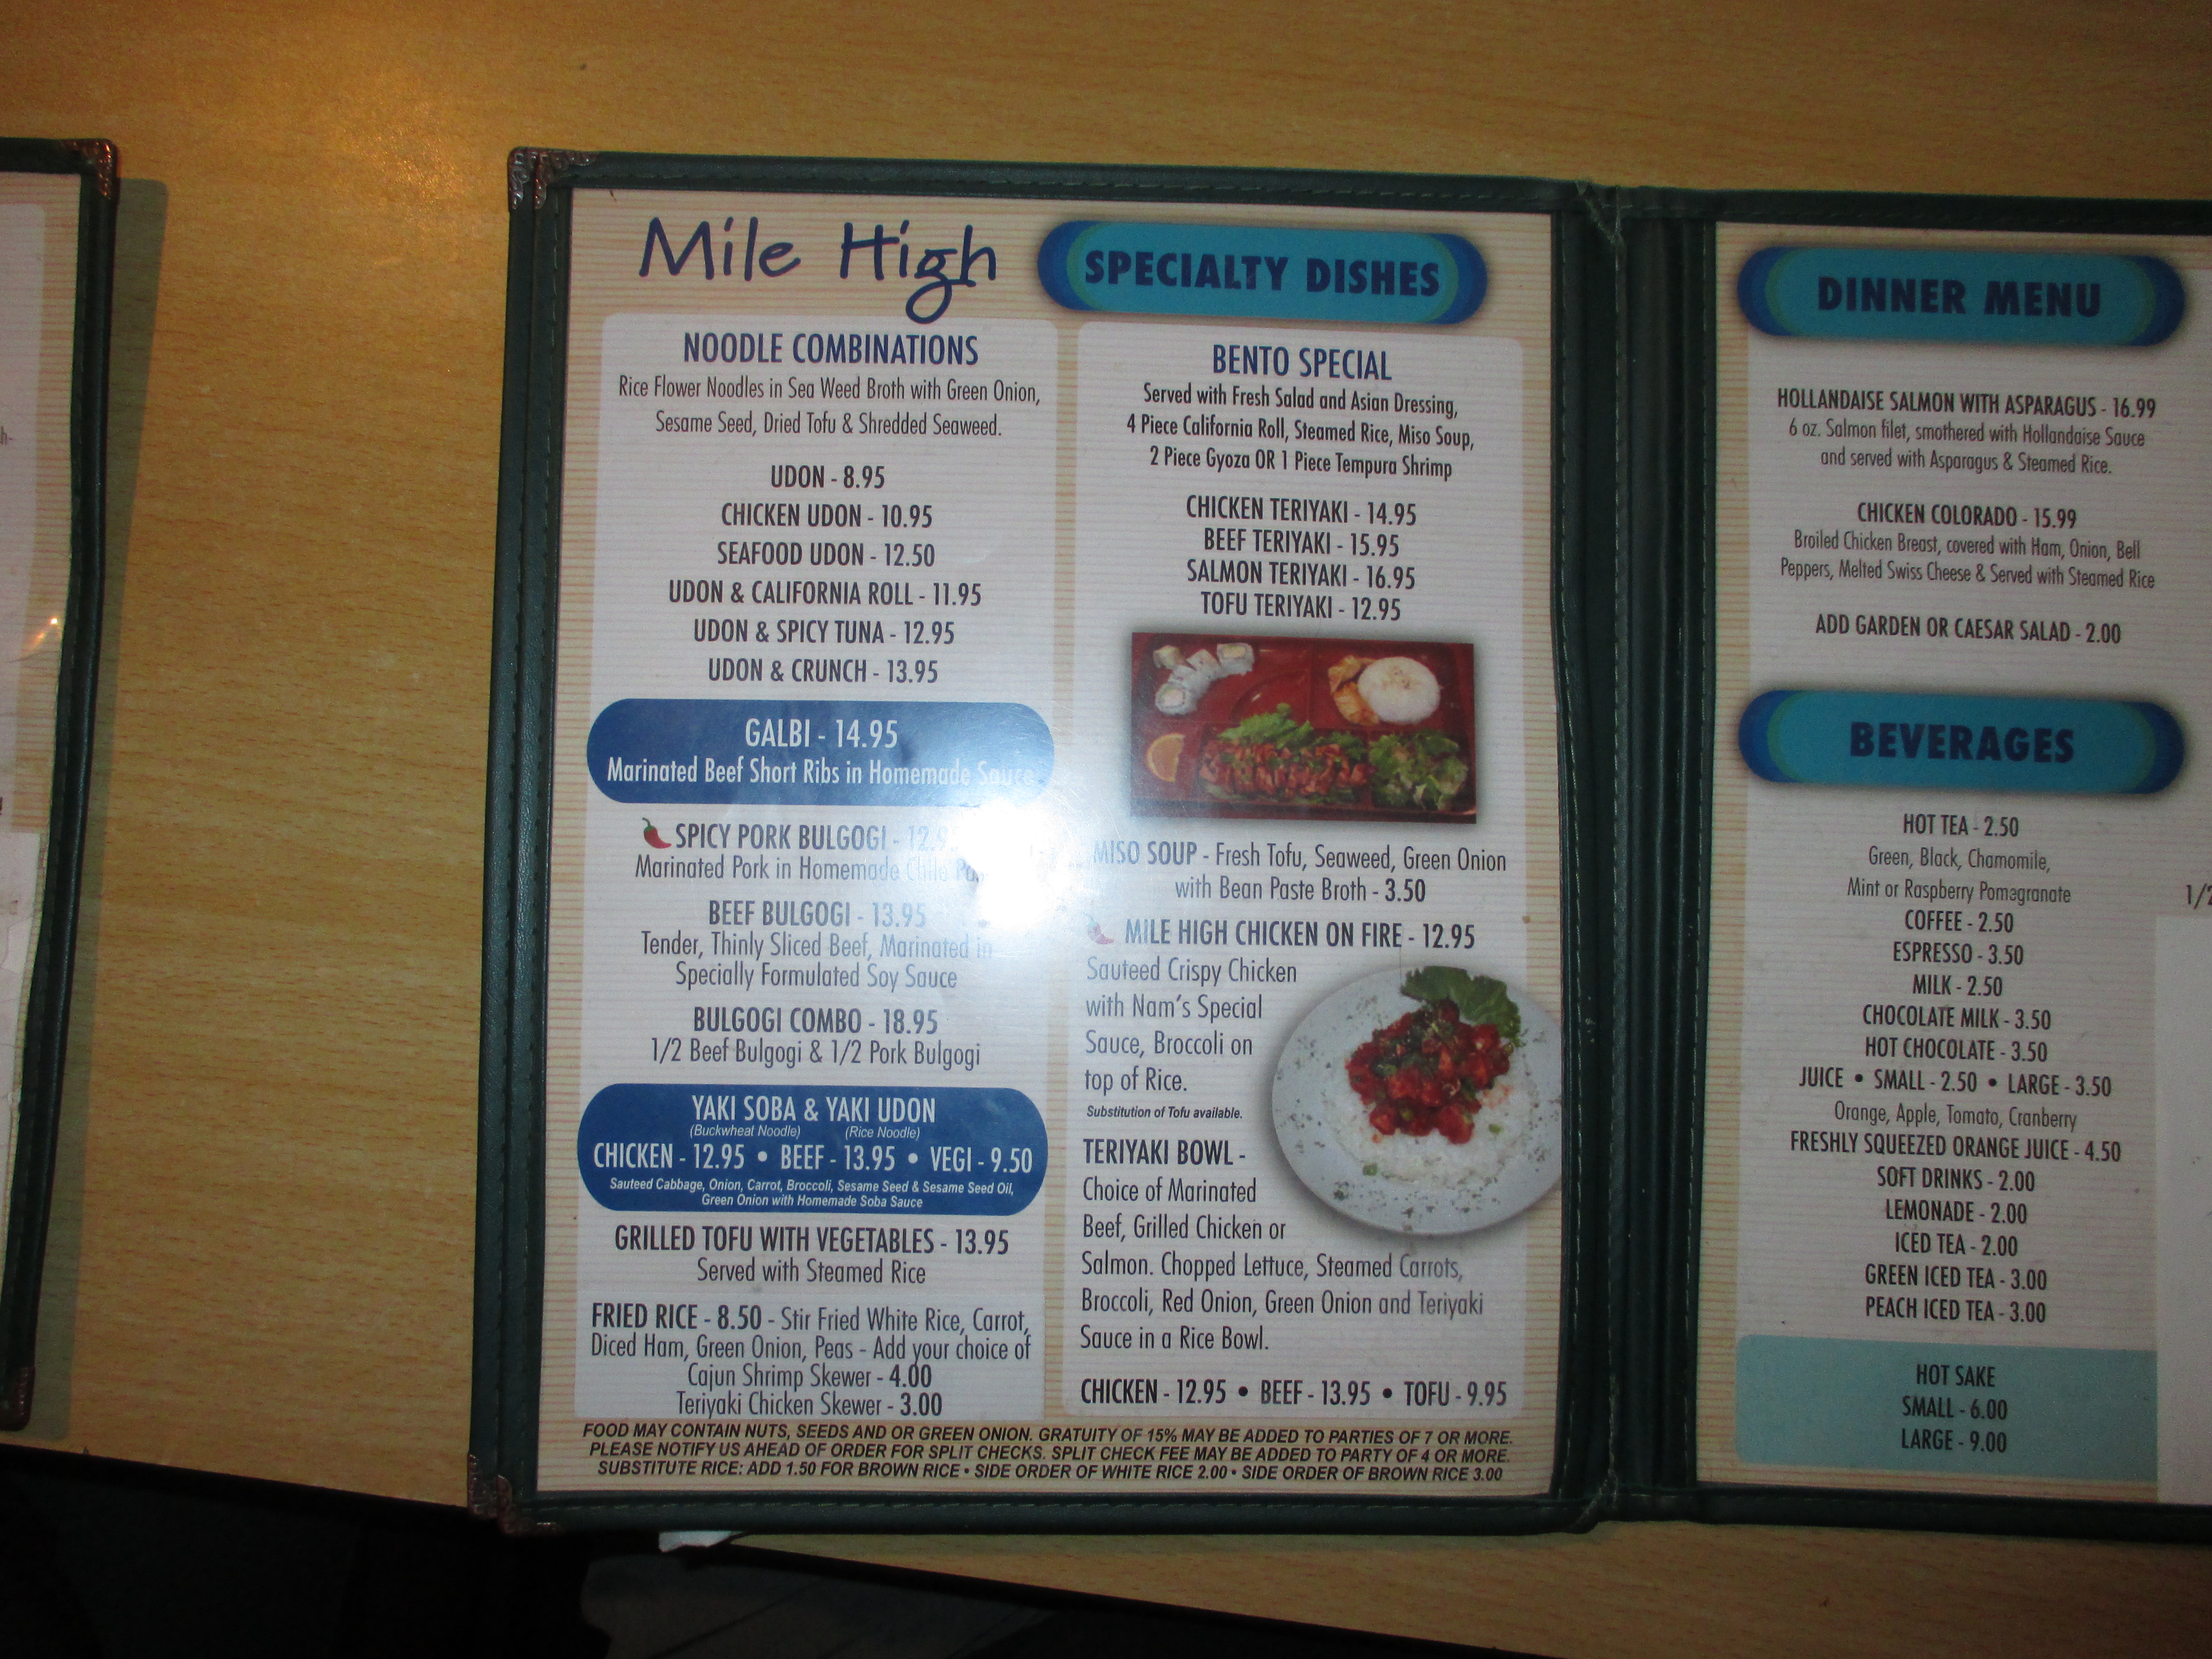 Mile High
SPECIALTY DISHES
NOODLE COMBINATIONS
Rice Flower Noodles in Sea Weed Broth with Green Onion,
Sesame Seed, Dried Tofu & Shredded Seaweed.
UDON - 8.95
CHICKEN UDON - 10.95
SEAFOOD UDON - 12.50
UDON & CALIFORNIA ROLL - 11.95
UDON & SPICY TUNA - 12.95
UDON & CRUNCH - 13.95
GALBI - 14.95
Marinated Beef Short Ribs in Homemade Sauce
SPICY PORK BULGOGI -
Marinated Pork in Homemade Chile
BEEF BULGOGI - 13.95
Tender, Thinly Sliced Beef, Marinated in
Specially Formulated Soy Sauce
BULGOGI COMBO - 18.95
1/2 Beef Bulgogi & 1/2 Pork Bulgogi
YAKI SOBA & YAKI UDON
(Buckwheat Noodle) (Rice Noodle)
CHICKEN - 12.95 • BEEF - 13.95 • VEGI - 9.50
Sauteed Cabbage, Onion, Carrot, Broccoli, Sesame Seed & Sesame Seed Oil,
Green Onion with Homemade Soba Sauce
GRILLED TOFU WITH VEGETABLES - 13.95
Served with Steamed Rice
FRIED RICE - 8.50 - Stir Fried White Rice, Carrot,
Diced Ham, Green Onion, Peas - Add your choice of
Cajun Shrimp Skewer - 4.00
Teriyaki Chicken Skewer - 3.00
BENTO SPECIAL
Served with Fresh Salad and Asian Dressing,
4 Piece California Roll, Steamed Rice, Miso Soup,
2 Piece Gyoza OR 1 Piece Tempura Shrimp
CHICKEN TERIYAKI - 14.95
BEEF TERIYAKI - 15.95
SALMON TERIYAKI - 16.95
TOFU TERIYAKI - 12.95
MISO SOUP - Fresh Tofu, Seaweed, Green Onion
with Bean Paste Broth - 3.50
MILE HIGH CHICKEN ON FIRE - 12.95
Sauteed Crispy Chicken
with Nam's Special
Sauce, Broccoli on
top of Rice.
Substitution of Tofu available.
TERIYAKI BOWL -
Choice of Marinated
Beef, Grilled Chicken or
Salmon. Chopped Lettuce, Steamed Carrots,
Broccoli, Red Onion, Green Onion and Teriyaki
Sauce in a Rice Bowl.
CHICKEN - 12.95 • BEEF - 13.95 • TOFU - 9.95
FOOD MAY CONTAIN NUTS, SEEDS AND OR GREEN ONION. GRATUITY OF 15% MAY BE ADDED TO PARTIES OF 7 OR MORE.
PLEASE NOTIFY US AHEAD OF ORDER FOR SPLIT CHECKS. SPLIT CHECK FEE MAY BE ADDED TO PARTY OF 4 OR MORE.
SUBSTITUTE RICE: ADD 1.50 FOR BROWN RICE • SIDE ORDER OF WHITE RICE 2.00 • SIDE ORDER OF BROWN RICE 3.00
DINNER MENU
HOLLANDAISE SALMON WITH ASPARAGUS - 16.99
6 oz. Salmon filet, smothered with Hollandaise Sauce
and served with Asparagus & Steamed Rice.
CHICKEN COLORADO - 15.99
Broiled Chicken Breast, covered with Ham, Onion, Bell
Peppers, Melted Swiss Cheese & Served with Steamed Rice
ADD GARDEN OR CAESAR SALAD - 2.00
BEVERAGES
HOT TEA - 2.50
Green, Black, Chamomile,
Mint or Raspberry Pomagranate
COFFEE - 2.50
ESPRESSO - 3.50
MILK - 2.50
CHOCOLATE MILK - 3.50
HOT CHOCOLATE - 3.50
JUICE • SMALL - 2.50 • LARGE - 3.50
Orange, Apple, Tomato, Cranberry
FRESHLY SQUEEZED ORANGE JUICE - 4.50
SOFT DRINKS - 2.00
LEMONADE - 2.00
ICED TEA - 2.00
GREEN ICED TEA - 3.00
PEACH ICED TEA - 3.00
HOT SAKE
SMALL - 6.00
LARGE - 9.00